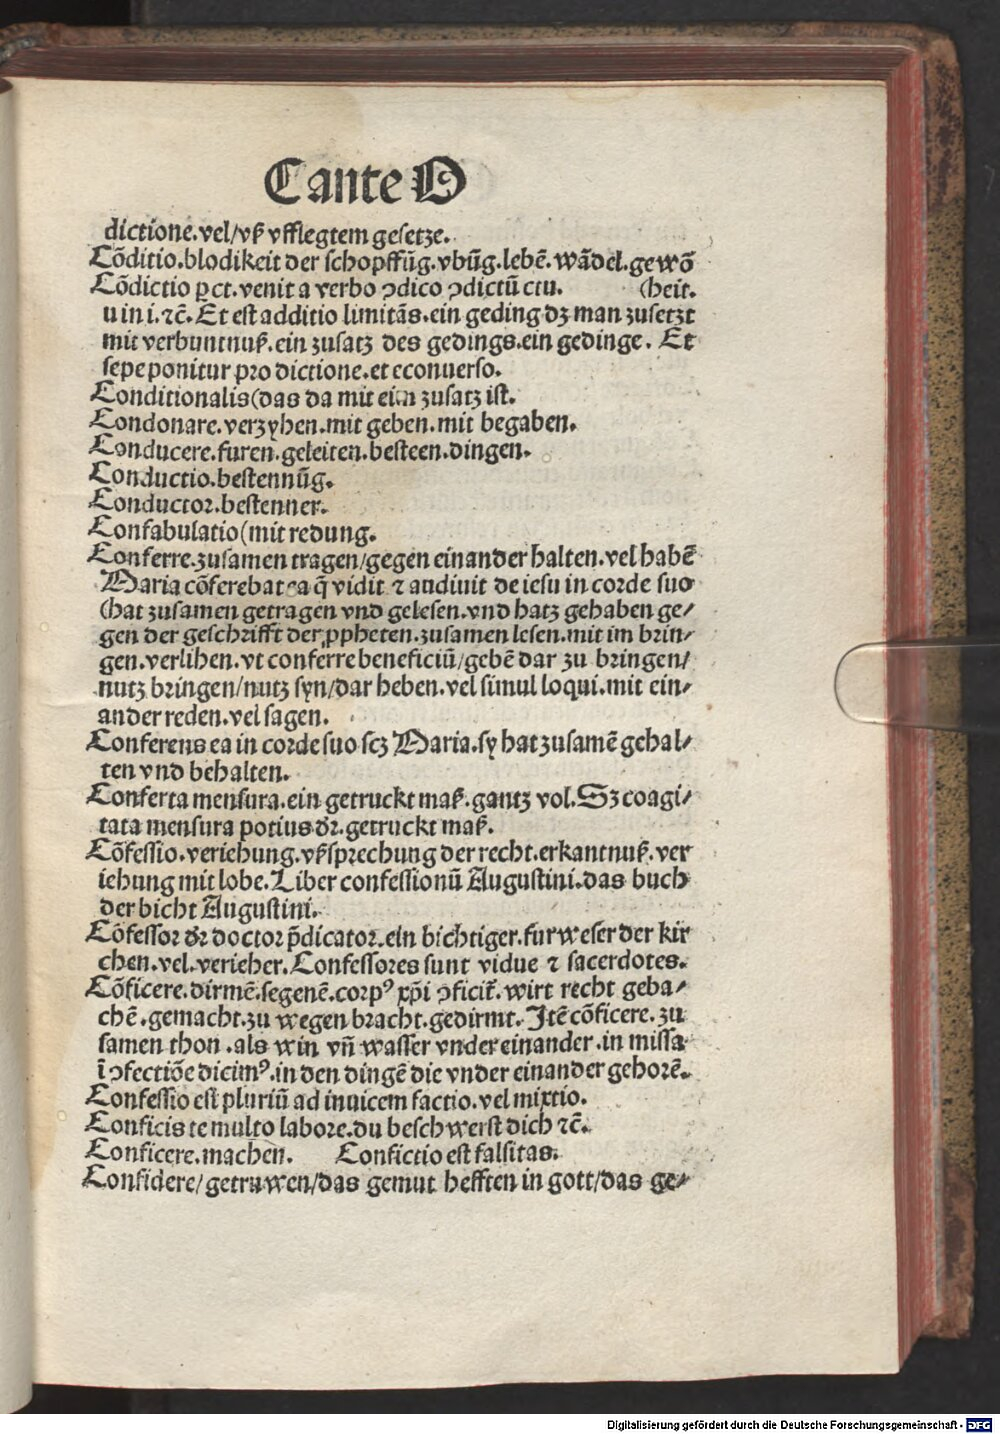 C ante O
dictione.vel/vß vfflegtem gesetze.
Cõditio.blodikeit der schopffũg.vbũg.lebẽ.wãdel.gewõ
Cõdictio ꝑct.venit a verbo ꝯdico ꝯdictũ ctu. (heit.
u in i.⁊c̃. Et est additio limitãs.ein geding dꝫ man zusetzt
mit verbuntnuß.ein zusatz des gedings.ein gedinge. Et
sepe ponitur pro dictione.et econuerso.
Conditionalis(das da mit ein zusatz ist.
Condonare.verzyhen.mit geben.mit begaben.
Conducere.furen.geleiten.besteen.dingen.
Conductio.bestennũg.
Conductor.bestenner.
Confabulatio(mit redung.
Conferre.zusamen tragen/gegen einander halten.vel habẽ
Maria cõferebat ea q̃ vidit ⁊ audiuit de iesu in corde suo
(hat zusamen getragen vnd gelesen.vnd hatz gehaben ge⸗
gen der geschrifft der ꝓpheten.zusamen lesen.mit im brin⸗
gen.verlihen.vt conferre beneficiũ/gebẽ dar zu bringen/
nutz bringen/nutz syn/dar heben.vel simul loqui.mit ein⸗
ander reden.vel sagen.
Conferens ea in corde suo scꝫ Maria.sy hat zusamẽ gehal⸗
ten vnd behalten.
Conferta mensura.ein getruckt maß.gantz vol.Sꝫ coagi⸗
tata mensura potius dr̃.getruckt maß.
Cõfessio.veriehung.vßsprechung der recht.erkantnuß.ver
iehung mit lobe.Liber confessionũ Augustini.das buch
der bicht Augustini.
Cõfessor dr̃ doctor p̃dicator.ein bichtiger.furweser der kir
chen.vel.verieher.Confessores sunt vidue ⁊ sacerdotes.
Cõficere.dirmẽ.segenẽ.corpꝰ xp̃i ꝯficit̃.wirt recht geba⸗
chẽ.gemacht.zu wegen bracht.gedirmt.Itẽ cõficere.zu
samen thon.als win vñ wasser vnder einander.in missa
ĩ ꝯfectiõe dicimꝰ.in den dingẽ die vnder einander gehorẽ.
Confessio est pluriũ ad inuicem factio.vel mixtio.
Conficis te multo labore.du beschwerst dich ⁊c̃.
Conficere.machen. Confictio est falsitas.
Confidere/getruwen/das gemut hefften in gott/das ge⸗
Digitalisierung gefördert durch die Deutsche Forschungsgemeinschaft - DFG